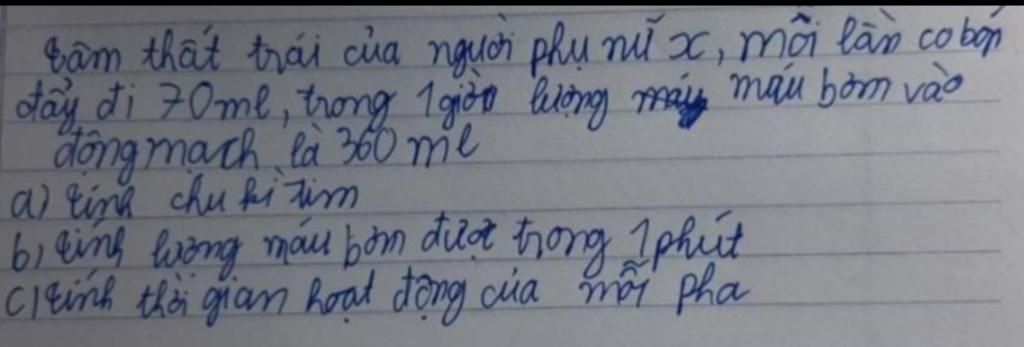 Tâm thất trái của người phụ nữ x, mỗi lần co bóp
đẩy đi 70ml, trong 1 giờ lượng máu bơm vào
động mạch là 360 ml
a) tính chu kì tim
b) tính lượng máu bơm được trong 1 phút
c) tính thời gian hoạt động của mỗi pha